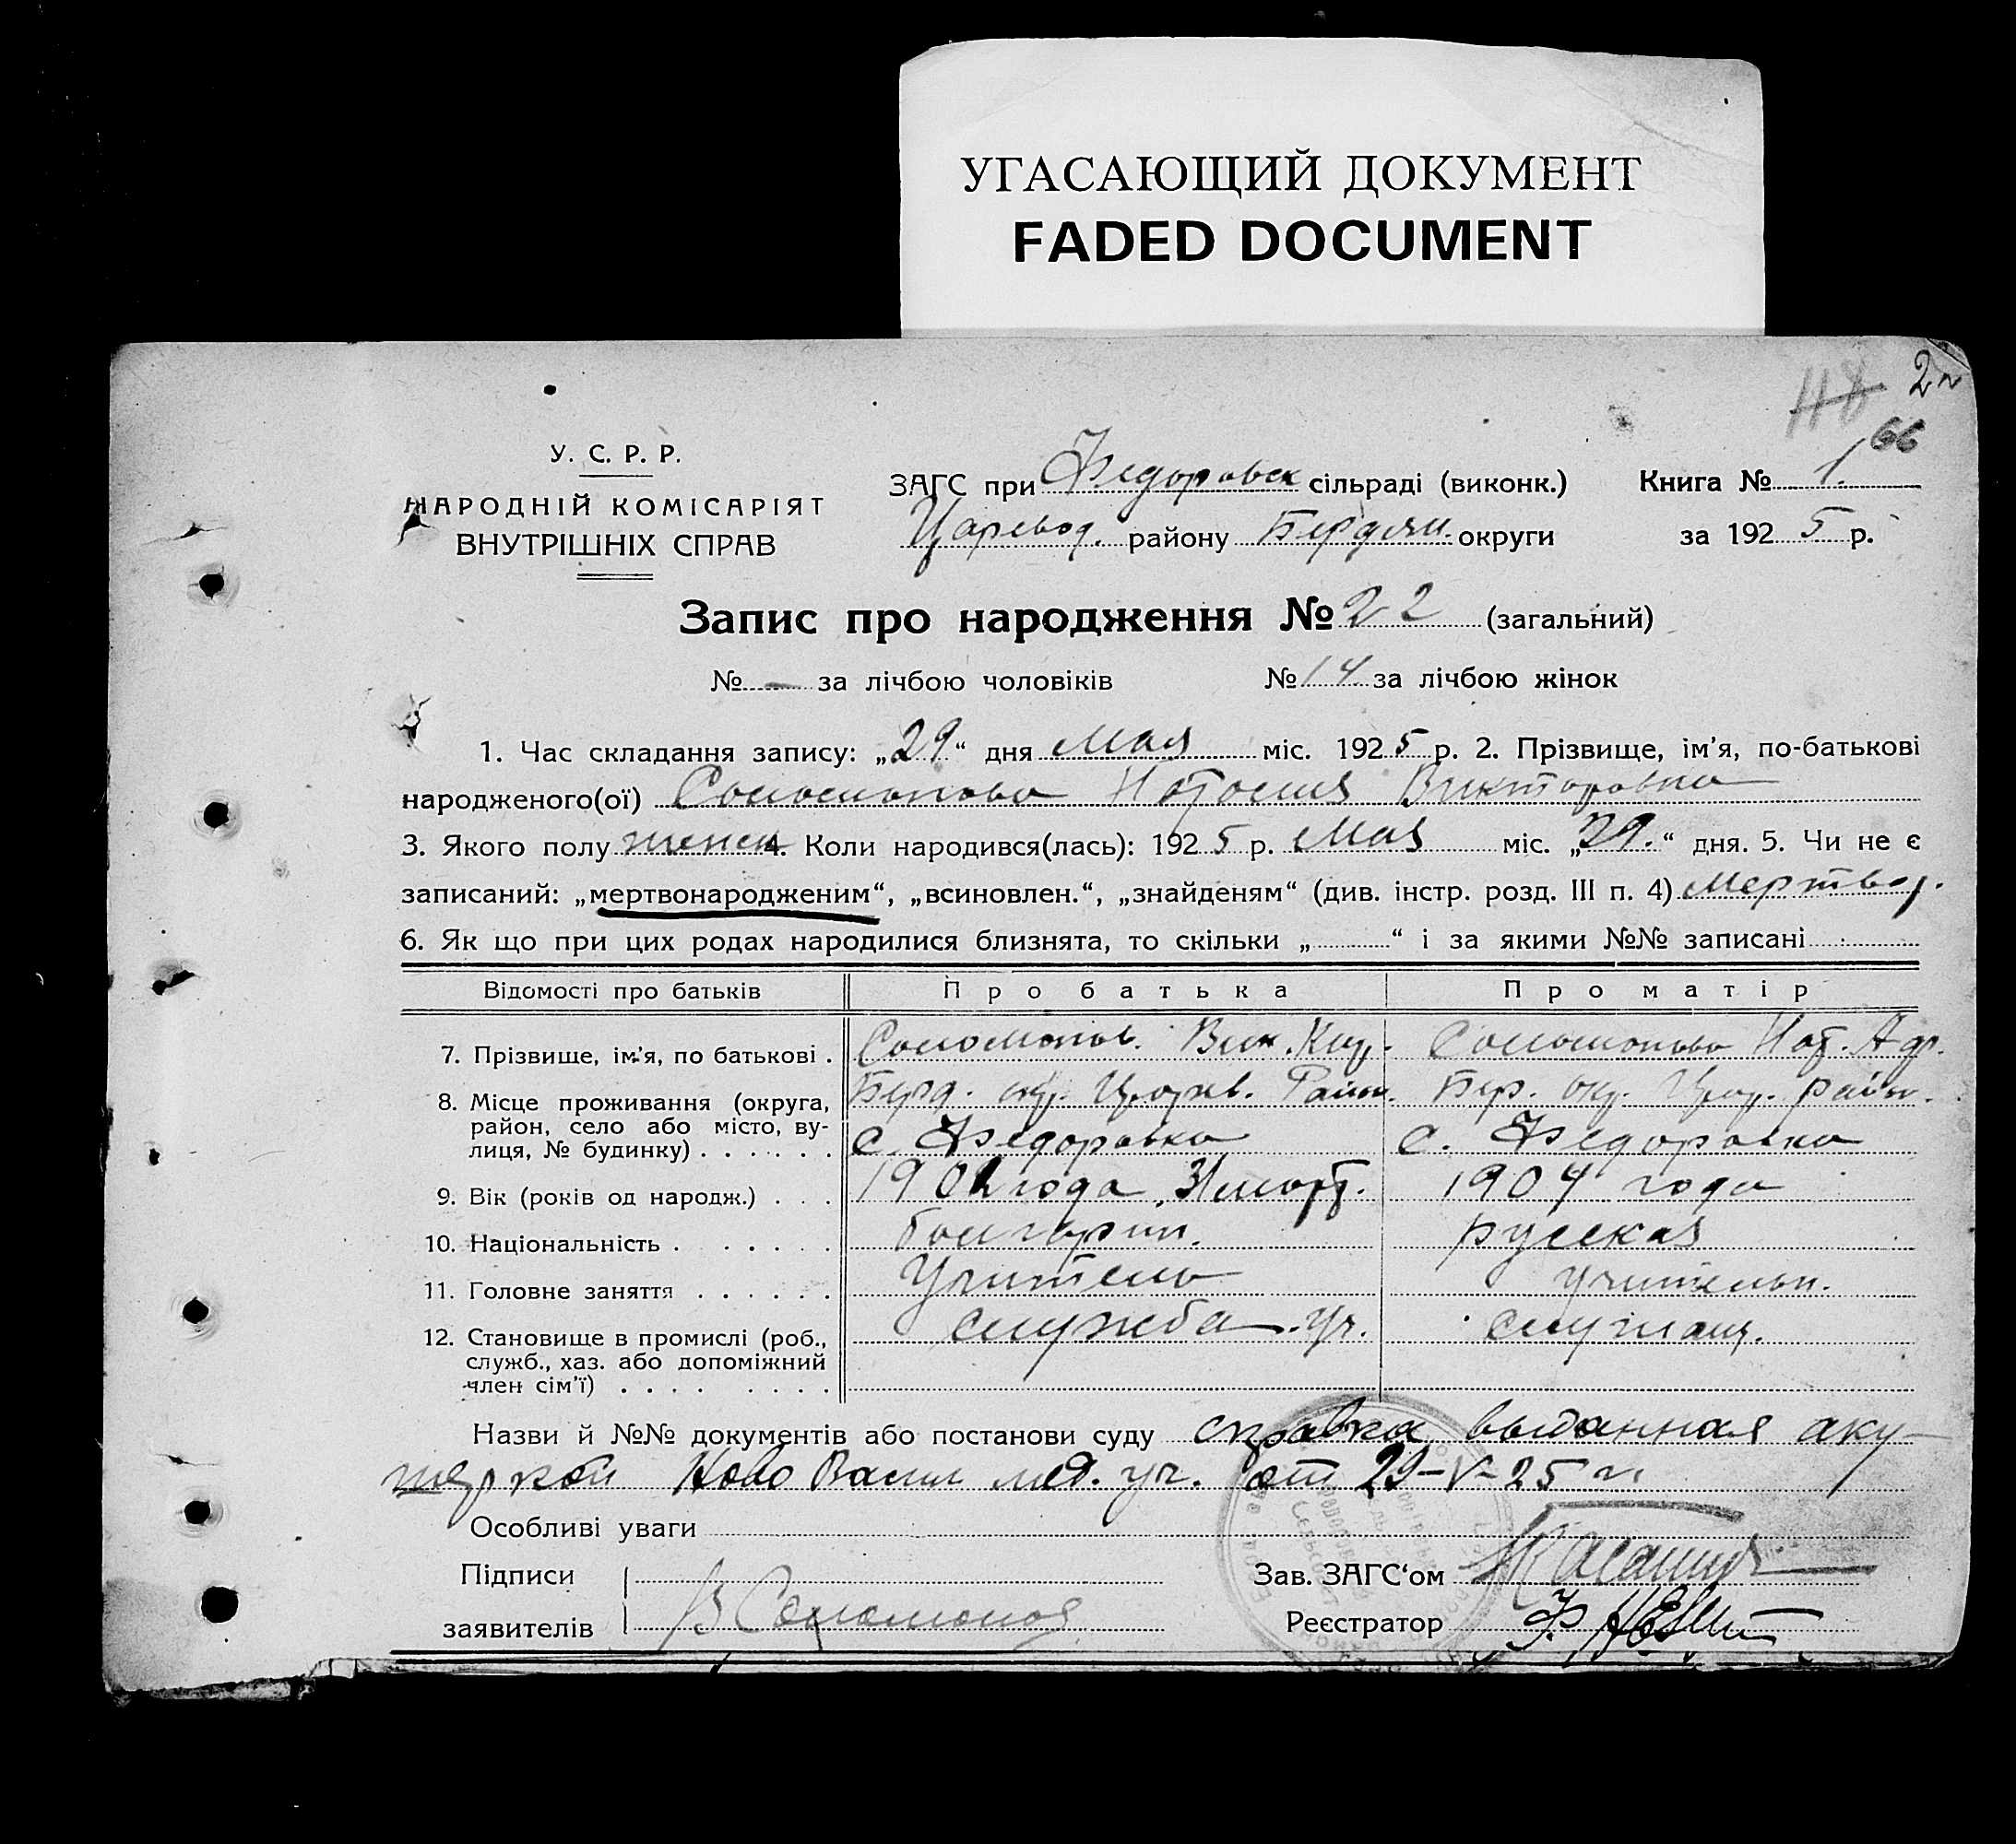 УГАСАЮЩИЙ ДОКУМЕНТ
FADED DOCUMENT
2
118
66
У. С. Р. Р.
НАРОДНІЙ КОМІСАРІЯТ
ВНУТРІШНІХ СПРАВ
ЗАГС при Федоровск сільраді (виконк.) Книга № 1.
Царевод. району Бердян. округи за 1925 р.
Запис про народження № 22 (загальний)
№ — за лічбою чоловіків № 14 за лічбою жінок
1. Час складання запису: „29“ дня Мая міс. 1925 р. 2. Прізвище, ім'я, по-батькові
народженого(ої) Соломонова Наталия Викторовна
3. Якого полу женск 4. Коли народився(лась): 1925 р. Мая міс. „29.“ дня. 5. Чи не є
записаний: „мертвонародженим“, „всиновлен.“, „знайденям“ (див. інстр. розд. III п. 4) Мертвор.
6. Як що при цих родах народилися близнята, то скільки „ “ і за якими №№ записані
Відомості про батьків Про батька Про матір
7. Прізвище, ім'я, по батькові . Соломонов. Вик. Соломонова Нат. Адр.
8. Місце проживання (округа, Берд. окр. Царев. Район. Бер. окр. Цар. район.
район, село або місто, ву-
лиця, № будинку) . . . . . . с. Федоровка с. Федоровка
9. Вік (років од народж.) . . . 1902 года 31 март. 1904 года
10. Національність . . . . . . болгарин. русская
11. Головне заняття . . . . . . Учитель учительн.
12. Становище в промислі (роб., служба. Уч. служащ.
служб., хаз. або допоміжний
член сім'ї) . . . . . . . .
Назви й №№ документів або постанови суду справка выданная аку-
шеркой Ново Васил мед. уч. от 29-V-25 г.
Особливі уваги
Підписи
заявителів В Соломонов
Зав. ЗАГС‘ом
Реєстратор Ф.